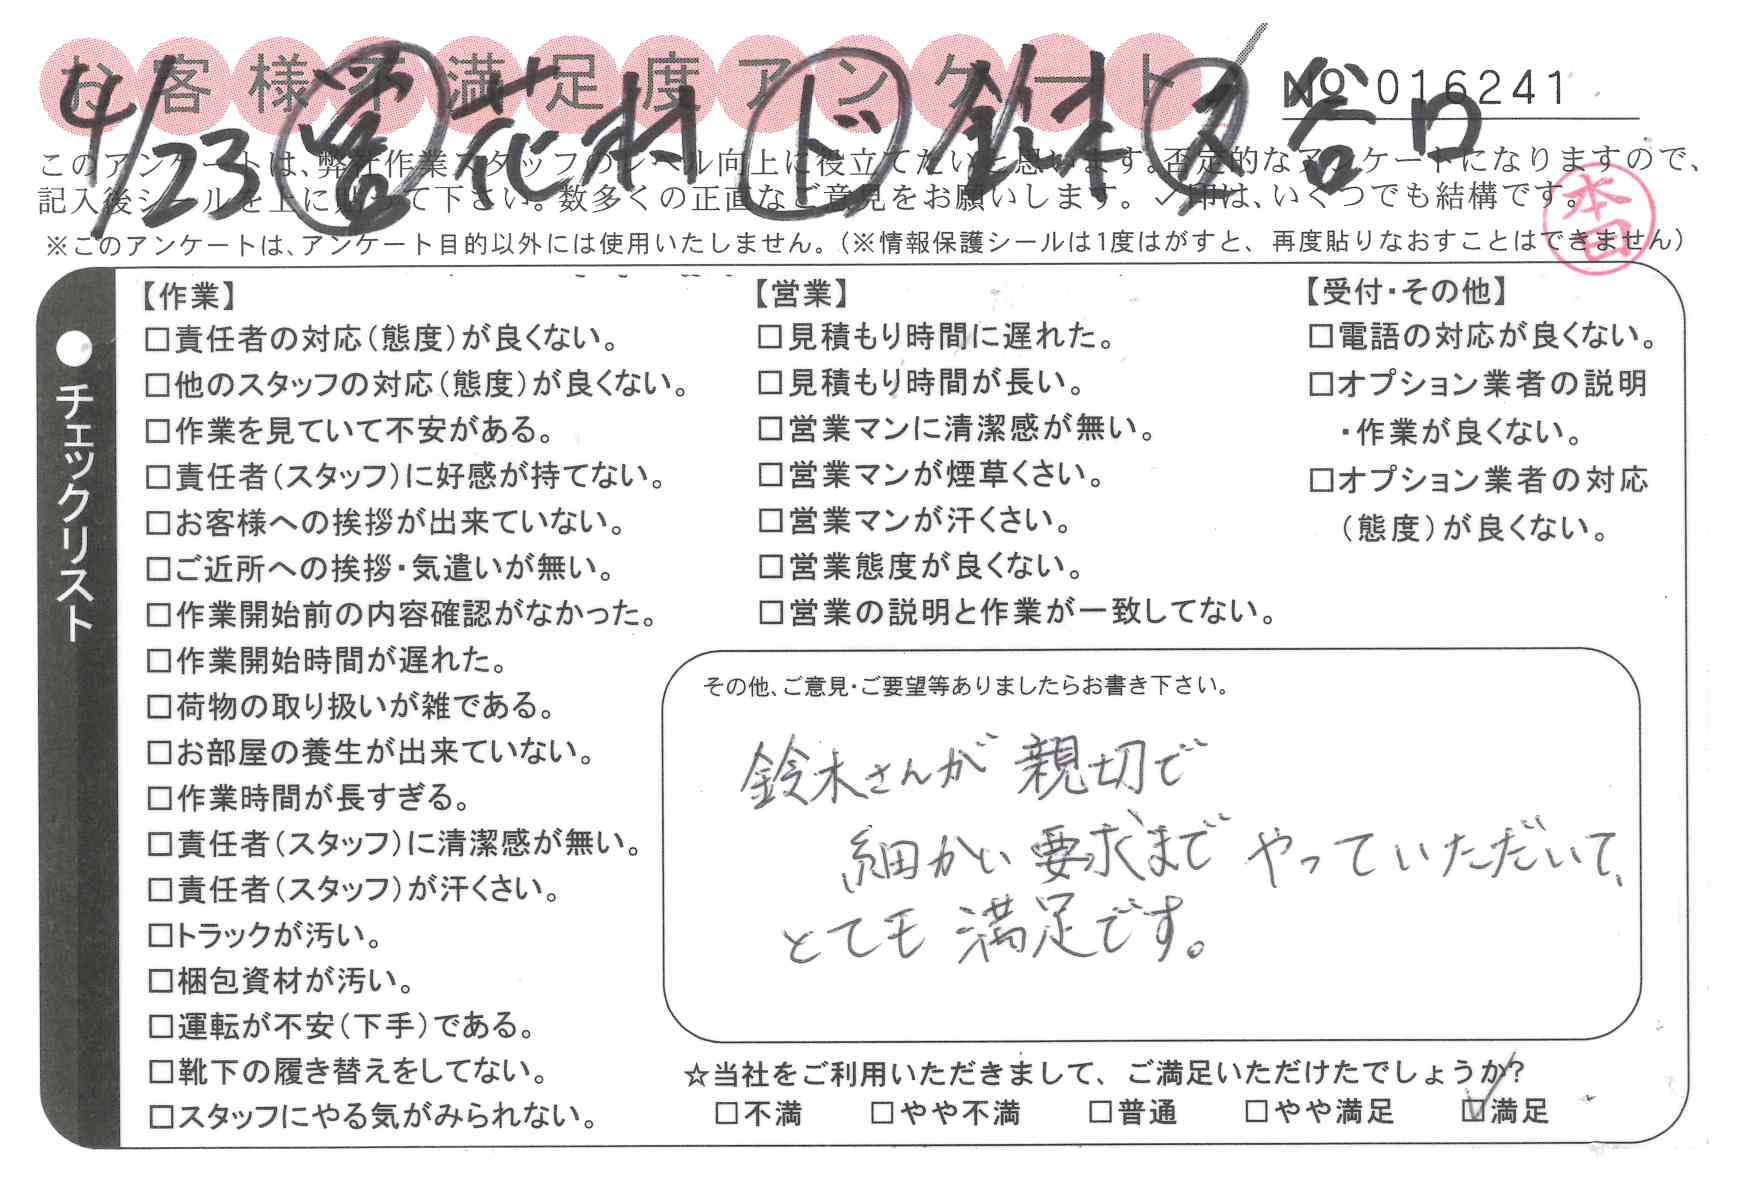 お客様不満足度アンケート
№ 016241
4/23 営 花村 ド 鈴木 又 谷口
このアンケートは、弊社作業スタッフのレベル向上に役立てたいと思います。否定的なアンケートになりますので、
記入後シールを上に貼って下さい。数多くの正直なご意見をお願いします。✓印は、いくつでも結構です。
本田
※このアンケートは、アンケート目的以外には使用いたしません。(※情報保護シールは1度はがすと、再度貼りなおすことはできません)
●チェックリスト
【作業】
□責任者の対応(態度)が良くない。
□他のスタッフの対応(態度)が良くない。
□作業を見ていて不安がある。
□責任者(スタッフ)に好感が持てない。
□お客様への挨拶が出来ていない。
□ご近所への挨拶・気遣いが無い。
□作業開始前の内容確認がなかった。
□作業開始時間が遅れた。
□荷物の取り扱いが雑である。
□お部屋の養生が出来ていない。
□作業時間が長すぎる。
□責任者(スタッフ)に清潔感が無い。
□責任者(スタッフ)が汗くさい。
□トラックが汚い。
□梱包資材が汚い。
□運転が不安(下手)である。
□靴下の履き替えをしてない。
□スタッフにやる気がみられない。
【営業】
□見積もり時間に遅れた。
□見積もり時間が長い。
□営業マンに清潔感が無い。
□営業マンが煙草くさい。
□営業マンが汗くさい。
□営業態度が良くない。
□営業の説明と作業が一致してない。
【受付・その他】
□電語の対応が良くない。
□オプション業者の説明
・作業が良くない。
□オプション業者の対応
(態度)が良くない。
その他、ご意見・ご要望等ありましたらお書き下さい。
鈴木さんが親切で
細かい要求までやっていただいて、
とても満足です。
☆当社をご利用いただきまして、ご満足いただけたでしょうか?
□不満 □やや不満 □普通 □やや満足 ☑満足